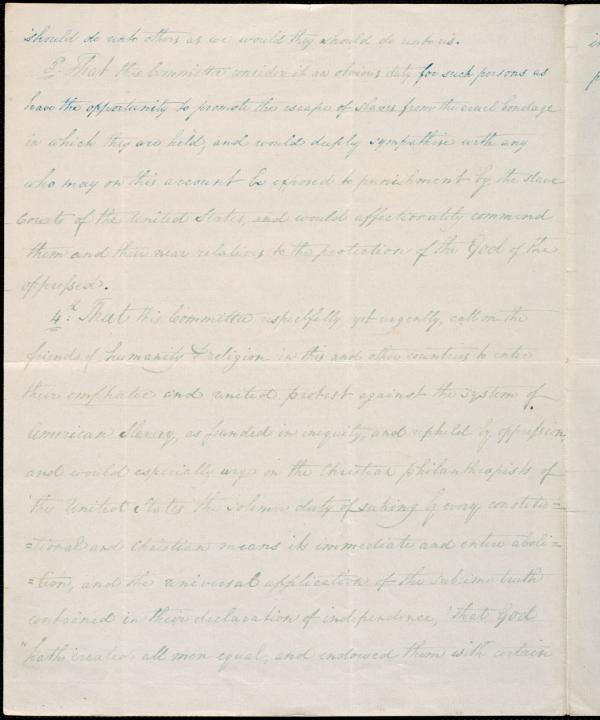 should do unto others as we would they should do unto us.
3d. That this Committee consider it an obvious duty for such persons as
have the opportunity to promote the escape of slaves from the cruel bondage
in which they are held, and would deeply sympathise with any
who may on this account be exposed to punishment by the slave
Courts of the United States, and would affectionately commend
them and their near relatives to the protection of the God of the
oppressed.
4th. That this Committee respectfully, yet urgently, call on the
friends of humanity & religion in this and other countries to enter
their emphatic and united protest against the system of
American Slavery, as founded in iniquity, and upheld by oppression,
and would especially urge on the Christian philanthropists of
the United States the solemn duty of seeking by every constitu=
=tional and Christian means its immediate and entire aboli=
=tion, and the universal application of the sublime truth
contained in their declaration of independence, "that God
"hath created all men equal, and endowed them with certain
in
p